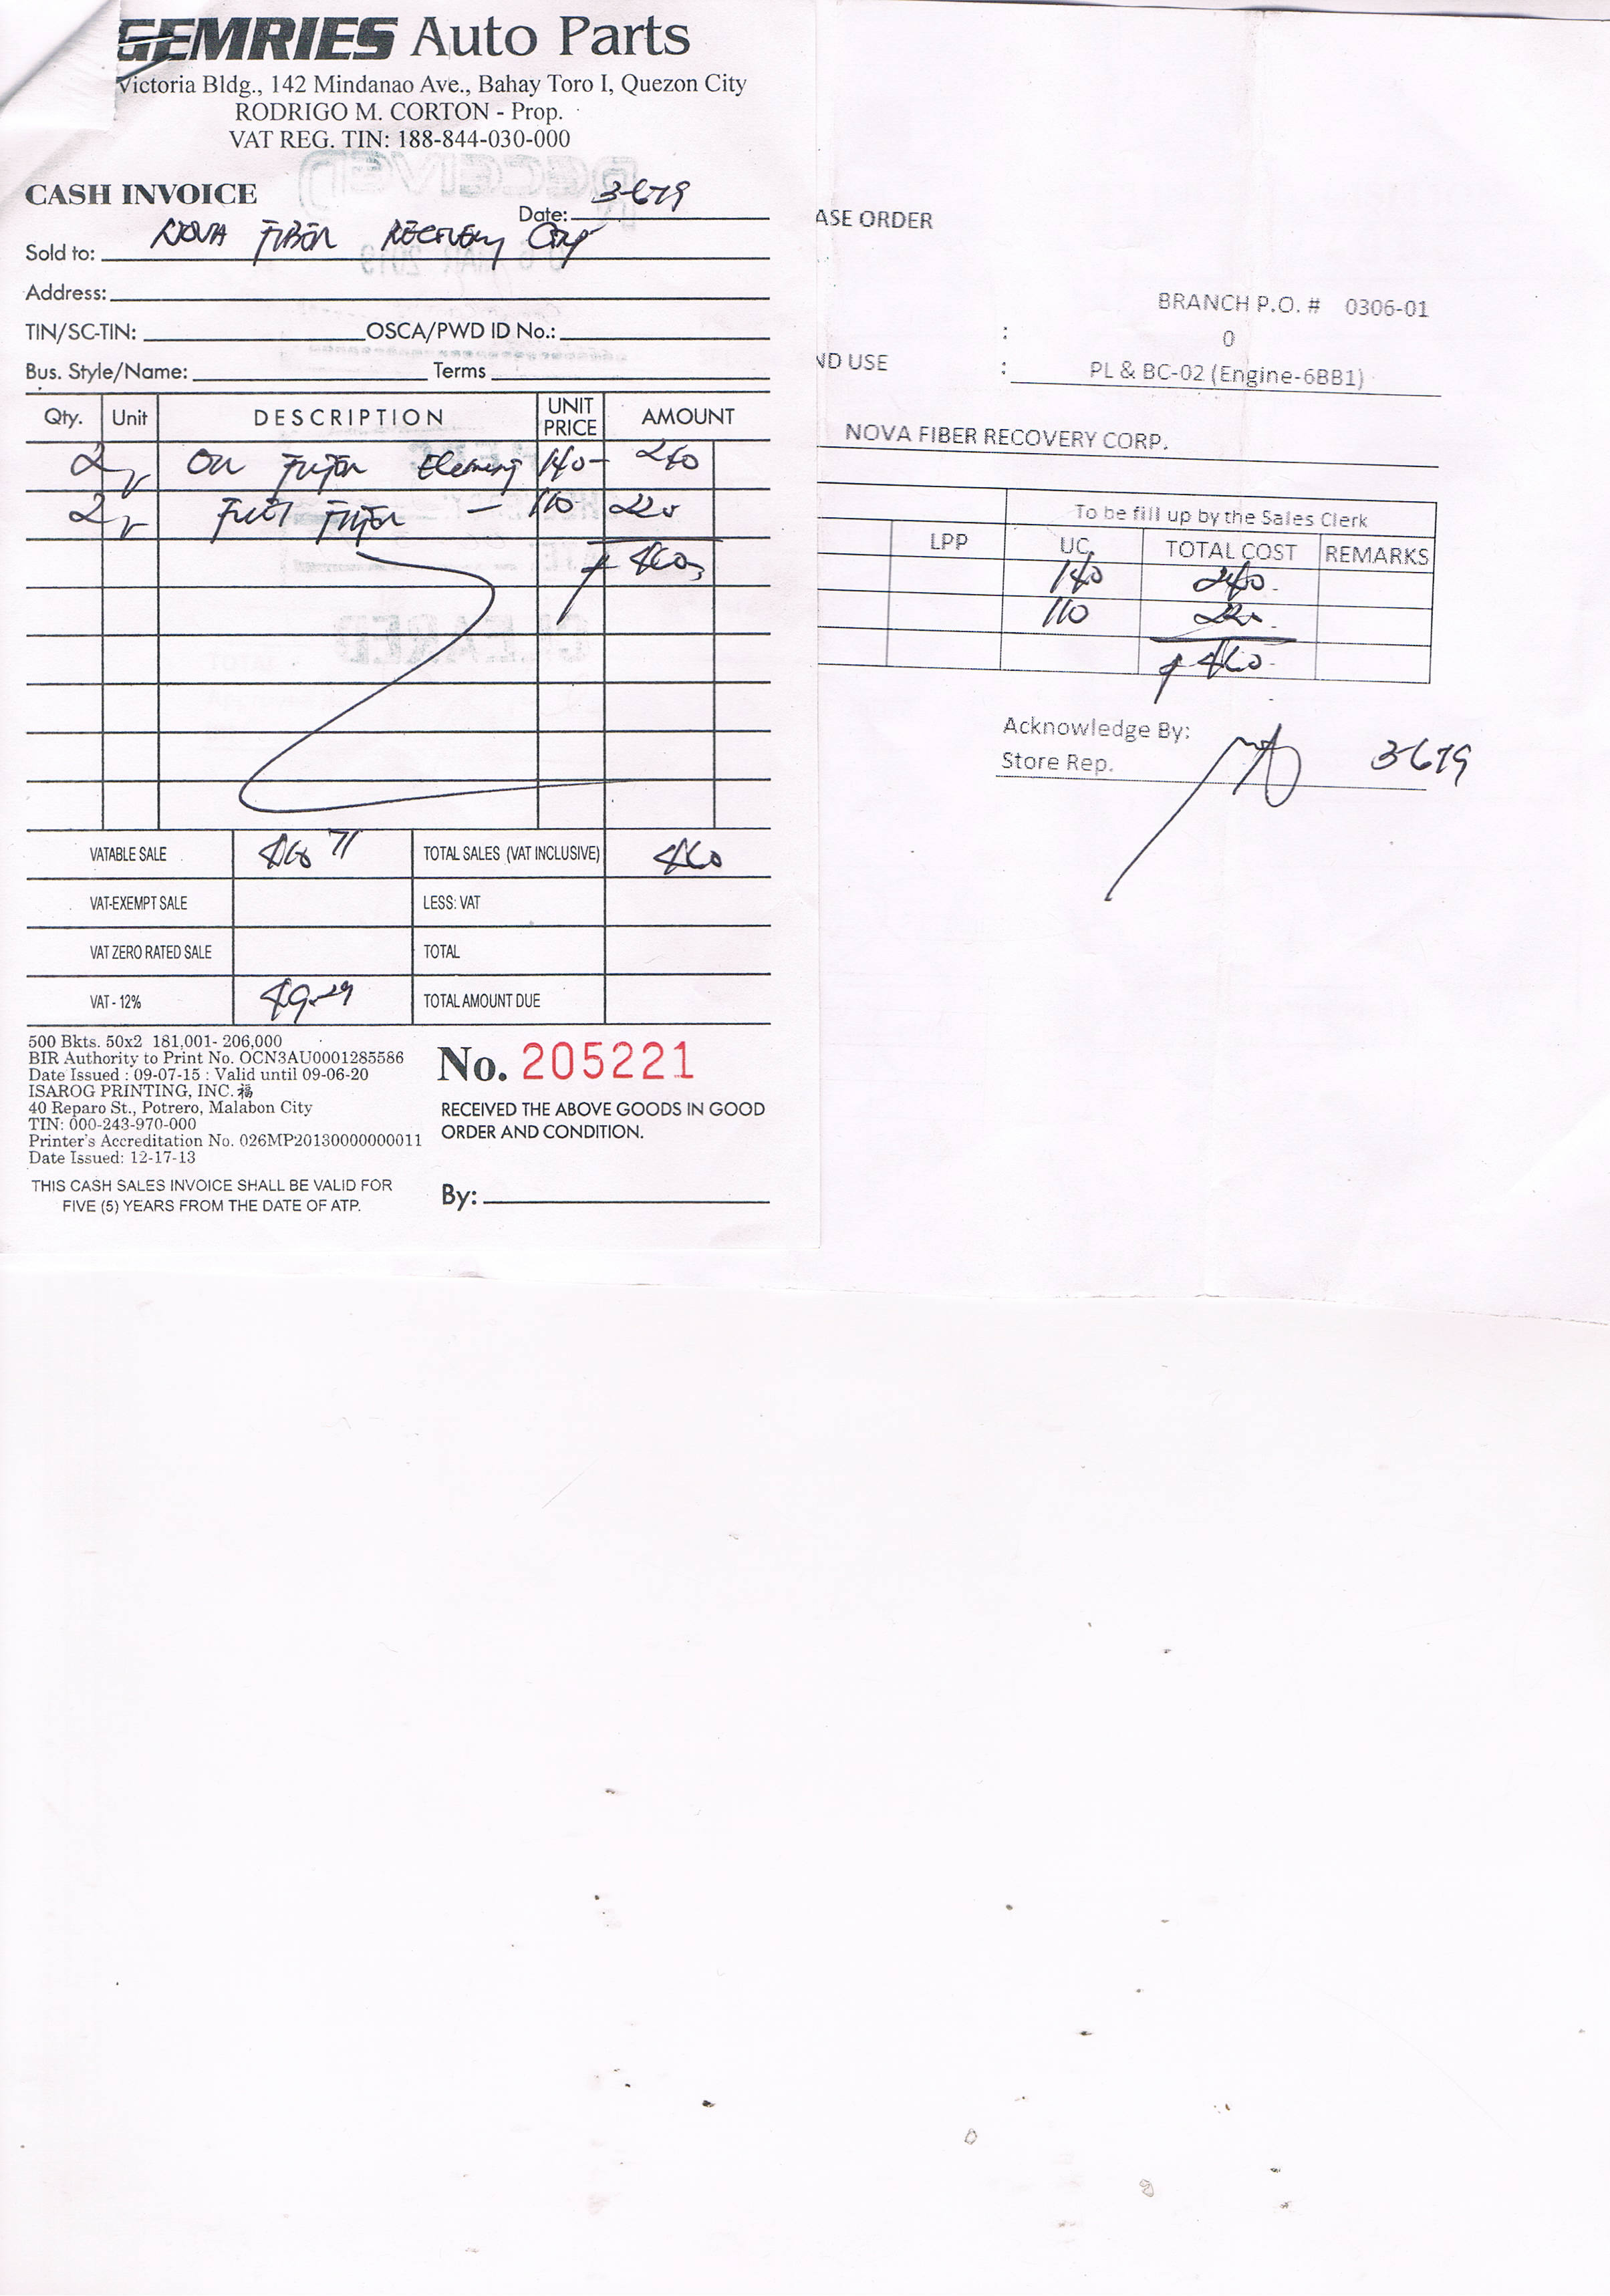 GEMRIES Auto Parts
Victoria Bldg., 142 Mindanao Ave., Bahay Toro I, Quezon City
RODRIGO M. CORTON - Prop.
VAT REG. TIN: 188-844-030-000
CASH INVOICE
Date: 3-6-19
Sold to: NOVA FIBER RECOVERY Corp
Address:
TIN/SC-TIN: OSCA/PWD ID No.:
Bus. Style/Name: Terms
Qty. Unit DESCRIPTION UNIT PRICE AMOUNT
2 Oil Filter Element 120- 240
2 Fuel Filter — 110 220
460
VATABLE SALE 410 71 TOTAL SALES (VAT INCLUSIVE) 460
VAT-EXEMPT SALE LESS: VAT
VAT ZERO RATED SALE TOTAL
VAT - 12% 49.29 TOTAL AMOUNT DUE
500 Bkts. 50x2 181,001- 206,000
BIR Authority to Print No. OCN3AU0001285586
Date Issued : 09-07-15 : Valid until 09-06-20
ISAROG PRINTING, INC. 福
40 Reparo St., Potrero, Malabon City
TIN: 000-243-970-000
Printer's Accreditation No. 026MP20130000000011
Date Issued: 12-17-13
THIS CASH SALES INVOICE SHALL BE VALID FOR
FIVE (5) YEARS FROM THE DATE OF ATP.
No. 205221
RECEIVED THE ABOVE GOODS IN GOOD
ORDER AND CONDITION.
By:
ASE ORDER
BRANCH P.O. # 0306-01
: 0
ND USE : PL & BC-02 (Engine-6BB1)
NOVA FIBER RECOVERY CORP.
To be fill up by the Sales Clerk
LPP UC TOTAL COST REMARKS
120 240-
110 220-
460-
Acknowledge By:
Store Rep. 3-6-19